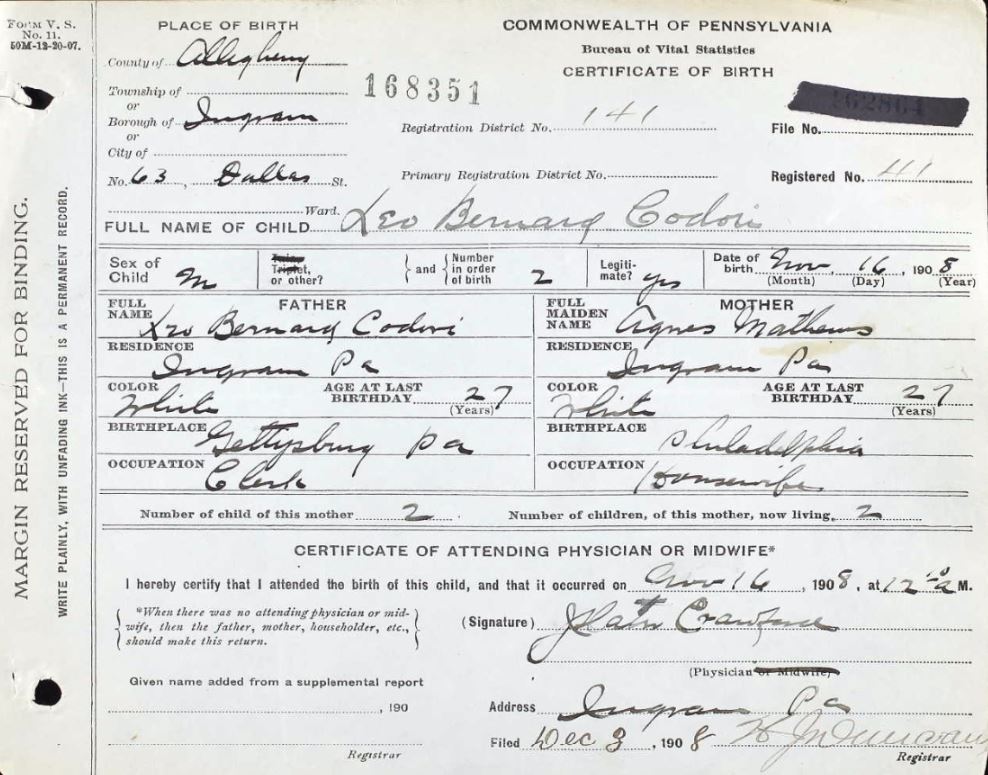 FORM V. S.
No. 11.
50M-12-20-07.
PLACE OF BIRTH
COMMONWEALTH OF PENNSYLVANIA
Bureau of Vital Statistics
CERTIFICATE OF BIRTH
County of Allegheny
168351
Township of
or
Borough of Ingram
or
City of
No. 63, Dallas St.
Ward.
Registration District No. 141
File No.
Primary Registration District No.
Registered No. 411
FULL NAME OF CHILD Leo Bernard Codori
Sex of Child M
Twin, Triplet, or other?
and
Number in order of birth 2
Legitimate? yes
Date of birth Nov, 16, 1908
(Month) (Day) (Year)
FATHER
FULL NAME Leo Bernard Codori
RESIDENCE Ingram Pa
COLOR White
AGE AT LAST BIRTHDAY 27
(Years)
BIRTHPLACE Gettysburg Pa
OCCUPATION Clerk
MOTHER
FULL MAIDEN NAME Agnes Mathews
RESIDENCE Ingram Pa
COLOR White
AGE AT LAST BIRTHDAY 27
(Years)
BIRTHPLACE Philadelphia
OCCUPATION Housewife
Number of child of this mother 2
Number of children, of this mother, now living, 2
CERTIFICATE OF ATTENDING PHYSICIAN OR MIDWIFE*
I hereby certify that I attended the birth of this child, and that it occurred on Nov 16, 1908, at 12 a M.
*When there was no attending physician or mid-
wife, then the father, mother, householder, etc.,
should make this return.
(Signature) Crawford
(Physician or Midwife)
Given name added from a supplemental report
, 190
Registrar
Address Ingram Pa
Filed Dec 3, 1908
Registrar
MARGIN RESERVED FOR BINDING.
WRITE PLAINLY, WITH UNFADING INK—THIS IS A PERMANENT RECORD.